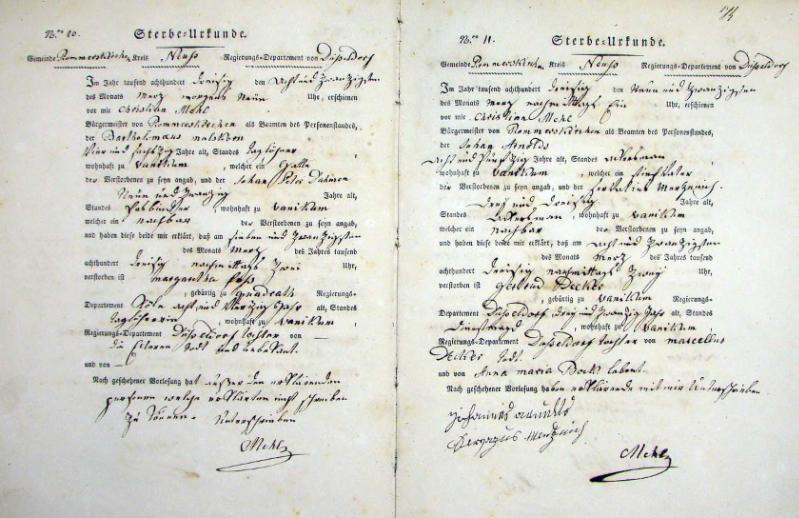 N.ro 10. Sterbe-Urkunde.
Gemeinde Rommerskirchen Kreis Neuss Regierungs-Departement von Düsseldorf
Im Jahr tausend achthundert dreisig den acht und zwanzigsten
des Monats Merz morgens Neun Uhr, erschienen
vor mir Christian Mehl
Bürgermeister von Rommerskirchen als Beamten des Personenstandes,
der Barthelmaus
Vier und sechszig Jahre alt, Standes Taglöhner
wohnhaft zu Vanikum, welcher ein Gatte
der Verstorbenen zu seyn angab, und der Johan Peter Dahmen
Neun und zwanzig Jahre alt,
Standes wohnhaft zu Vanikum
welcher ein Nachbar der Verstorbenen zu seyn angab,
und haben diese beide mir erklärt, daß am sieben und zwanzigsten
des Monats Merz des Jahres tausend
achthundert dreisig nachmittags zwei Uhr,
verstorben ist
Margaretha
, gebürtig zu Quadrath Regierungs-
Departement Cöln acht und Jahr alt, Standes
Taglöhnerin, wohnhaft zu Vanikum,
Regierungs-Departement Düsseldorf tochter von —
die Elteren todt und unbekant.
und von —
Nach geschehener Vorlesung hat außer den erklärenden
personen welche erklärten nicht schreiben
zu können. Unterschrieben
Mehl
N.ro 11. Sterbe-Urkunde.
Gemeinde Rommerskirchen Kreis Neuss Regierungs-Departement von Düsseldorf
Im Jahr tausend achthundert dreisig den Neun und zwanzigsten
des Monats Merz nachmittags Ein Uhr, erschienen
vor mir Christian Mehl
Bürgermeister von Rommerskirchen als Beamten des Personenstandes,
der Johan Arnolds
acht und fünfzig Jahre alt, Standes Ackersman
wohnhaft zu Vanikum, welcher ein
der Verstorbenen zu seyn angab, und der Servatius
drey und dreisig Jahre alt,
Standes Ackersman, wohnhaft zu Vanikum
welcher ein Nachbar der Verstorbenen zu seyn angab,
und haben diese beide mir erklärt, daß am acht und zwanzigsten
des Monats Merz des Jahres tausend
achthundert dreisig nachmittags zwey Uhr,
verstorben ist Gertrud Decker
, gebürtig zu Vanikum Regierungs-
Departement Düsseldorf drey und zwanzig Jahr alt, Standes
Dienstmagd, wohnhaft zu Vanikum
Regierungs-Departement Düsseldorf tochter von Marcellus
Decker todt.
und von Anna Maria Bock lebent.
Nach geschehener Vorlesung haben erklärende mit mir Unterschrieben
Mehl